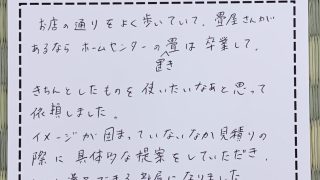 お店の通りをよく歩いていて、畳屋さんが
あるなら ホームセンターの畳は卒業して、
置き
きちんとしたものを使いたいなあと思って
依頼しました。
イメージが固まっていないなか見積りの
際に具体的な提案をしていただき、
になりました